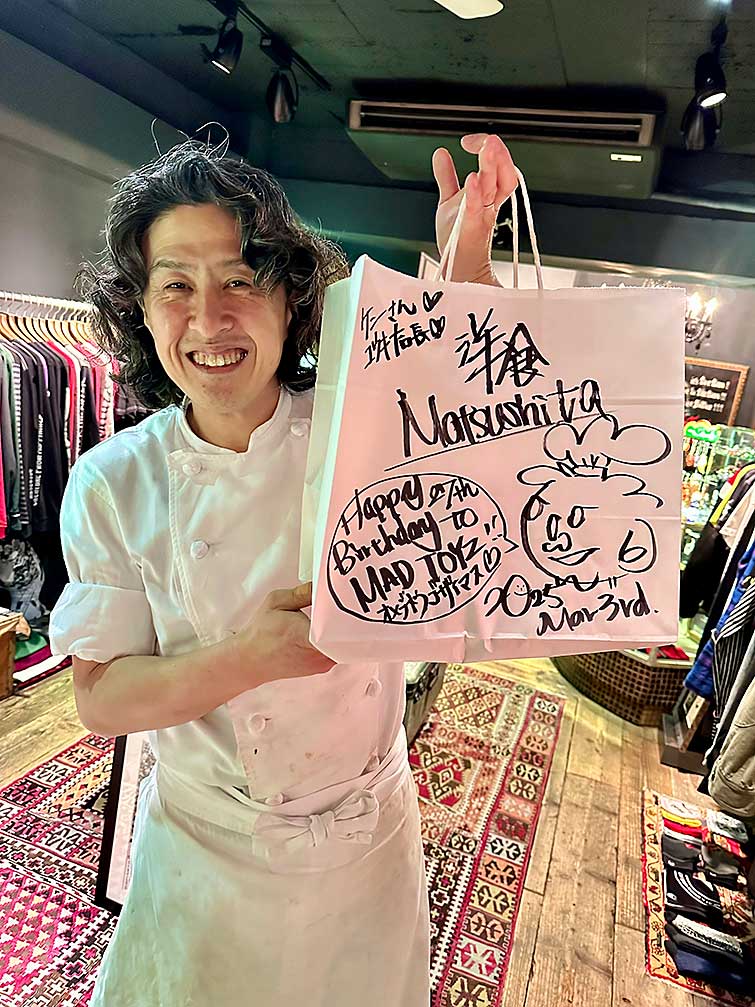 ケンさん♡
店長♡
洋食
Matsushita
Happy 27th
Birthday TO
MAD TOYZ!!
オメデトウゴザイマス♡
2025
Mar 3rd.